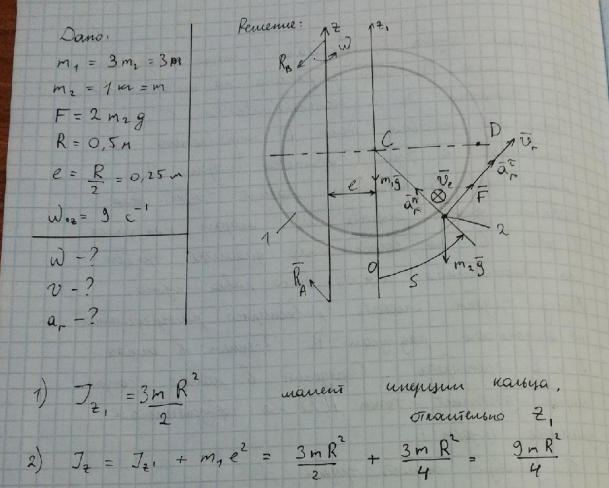 Дано:
m₁ = 3m₂ = 3m
m₂ = 1 кг = m
F = 2m₂g
R = 0,5 м
e = R/2 = 0,25 м
ω₀z = 9 с⁻¹
ω - ?
v - ?
aᵣ - ?
Решение:
z
z₁
ω
R_B
C
D
v̄ᵣ
āᵣᵗ
F̄
v̄ₑ
āᵣⁿ
m₁ḡ
e
1
2
O
S
m₂ḡ
R̄_A
1) J_z₁ = 3mR²/2 момент инерции кольца,
относительно z₁
2) J_z = J_z₁ + m₁e² = 3mR²/2 + 3mR²/4 = 9mR²/4